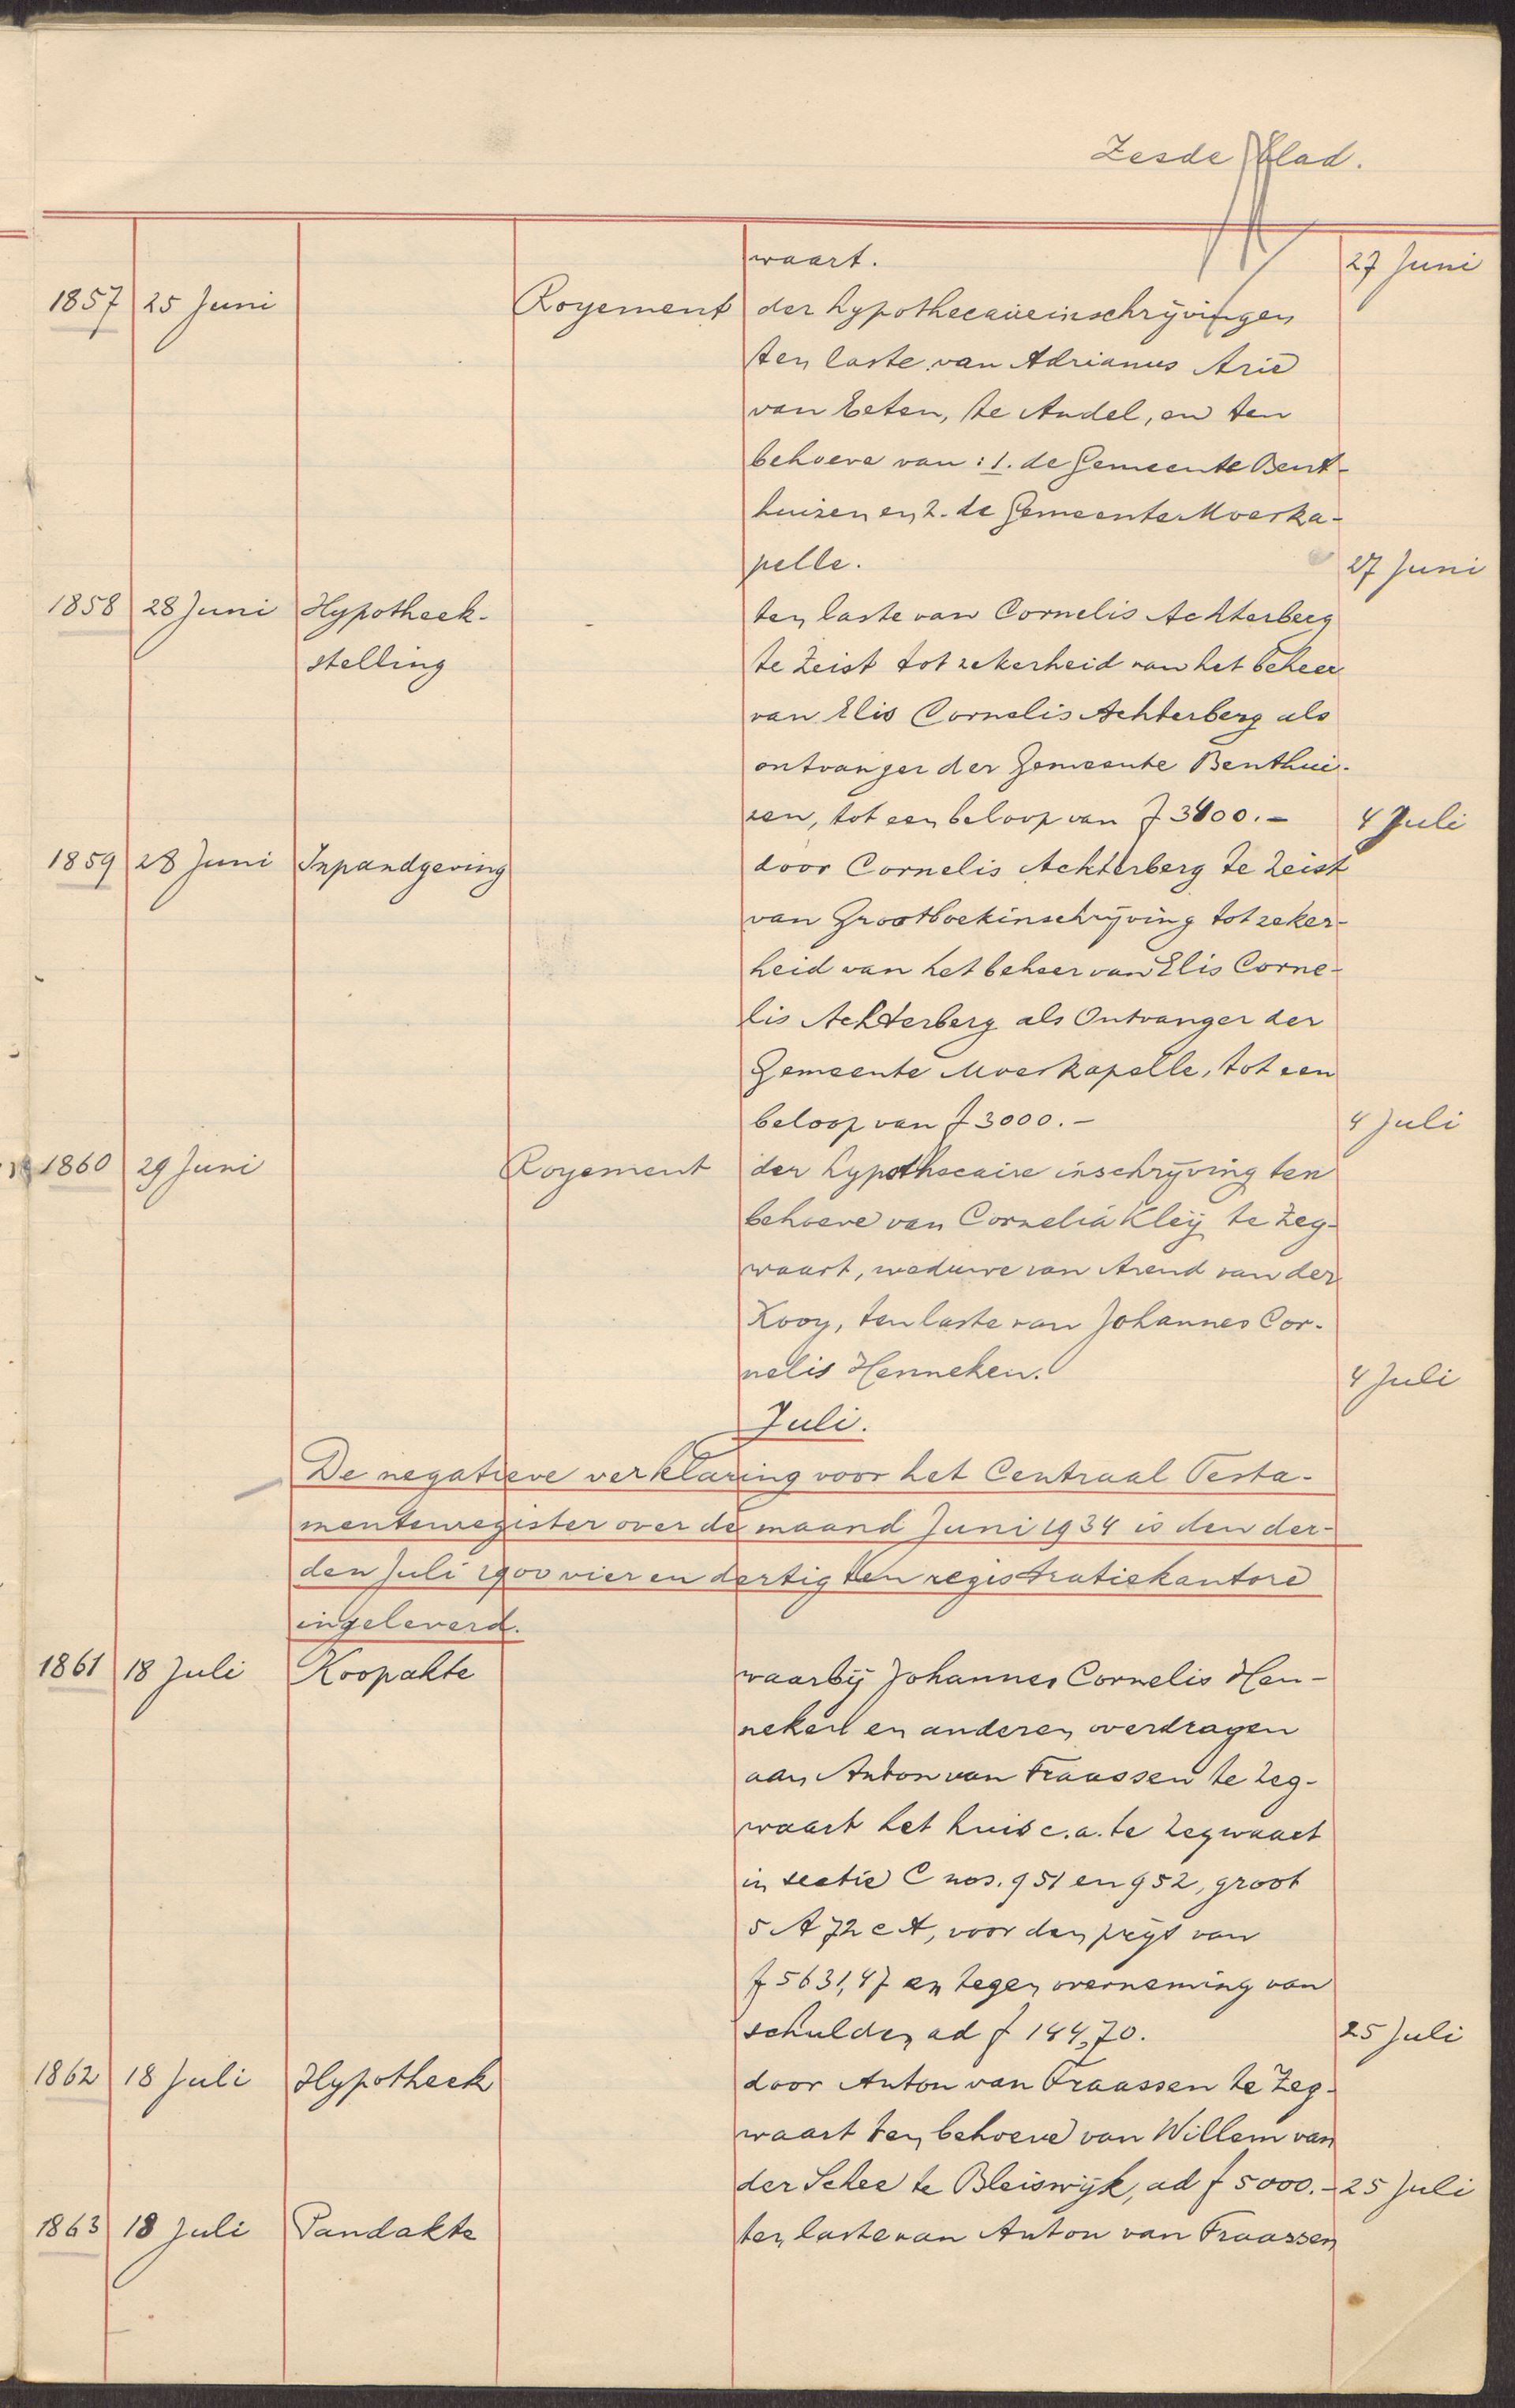 Zesde blad.
waart. 27 Juni
1857 25 Juni Royement der hypothecaireinschrijvingen
ten laste van Adrianus Arie
van Eeten, te Andel, en ten
behoeve van: 1. de Gemeente Bent-
huizen en 2. de Gemeente Moerka-
pelle. 27 Juni
1858 28 Juni Hypotheek- ten laste van Cornelis Achterberg
stelling te Zeist tot zekerheid van het beheer
van Elis Cornelis Achterberg als
ontvanger der Gemeente Benthui-
zen, tot een beloop van f 3400.- 4 Juli
1859 28 Juni Inpandgeving door Cornelis Achterberg te Zeist
van Grootboekinschrijving tot zeker-
heid van het beheer van Elis Corne-
lis Achterberg als Ontvanger der
Gemeente Moerkapelle, tot een
beloop van f 3000.- 4 Juli
1860 29 Juni Royement der hypothecaire inschrijving ten
behoeve van Cornelia Kleij te Zeg-
waart, weduwe van Arend van der
Kooy, ten laste van Johannes Cor-
nelis Henneken. 4 Juli
Juli.
De negatieve verklaring voor het Centraal Testa-
mentenregister over de maand Juni 1934 is den der-
den Juli 1900 vier en dertig ten registratiekantore
ingeleverd.
1861 18 Juli Koopakte waarbij Johannes Cornelis Hen-
neken en anderen overdragen
aan Anton van Fraassen te Zeg-
waart het huis c.a. te Zegwaart
in sectie C nos. 951 en 952, groot
5 A 72 cA, voor den prijs van
f 5631,47 en tegen overneming van
schulden ad f 144,70. 25 Juli
1862 18 Juli Hypotheek door Anton van Fraassen te Zeg-
waart ten behoeve van Willem van
der Schee te Bleiswijk, ad f 5000.- 25 Juli
1863 18 Juli Pandakte ten laste van Anton van Fraassen